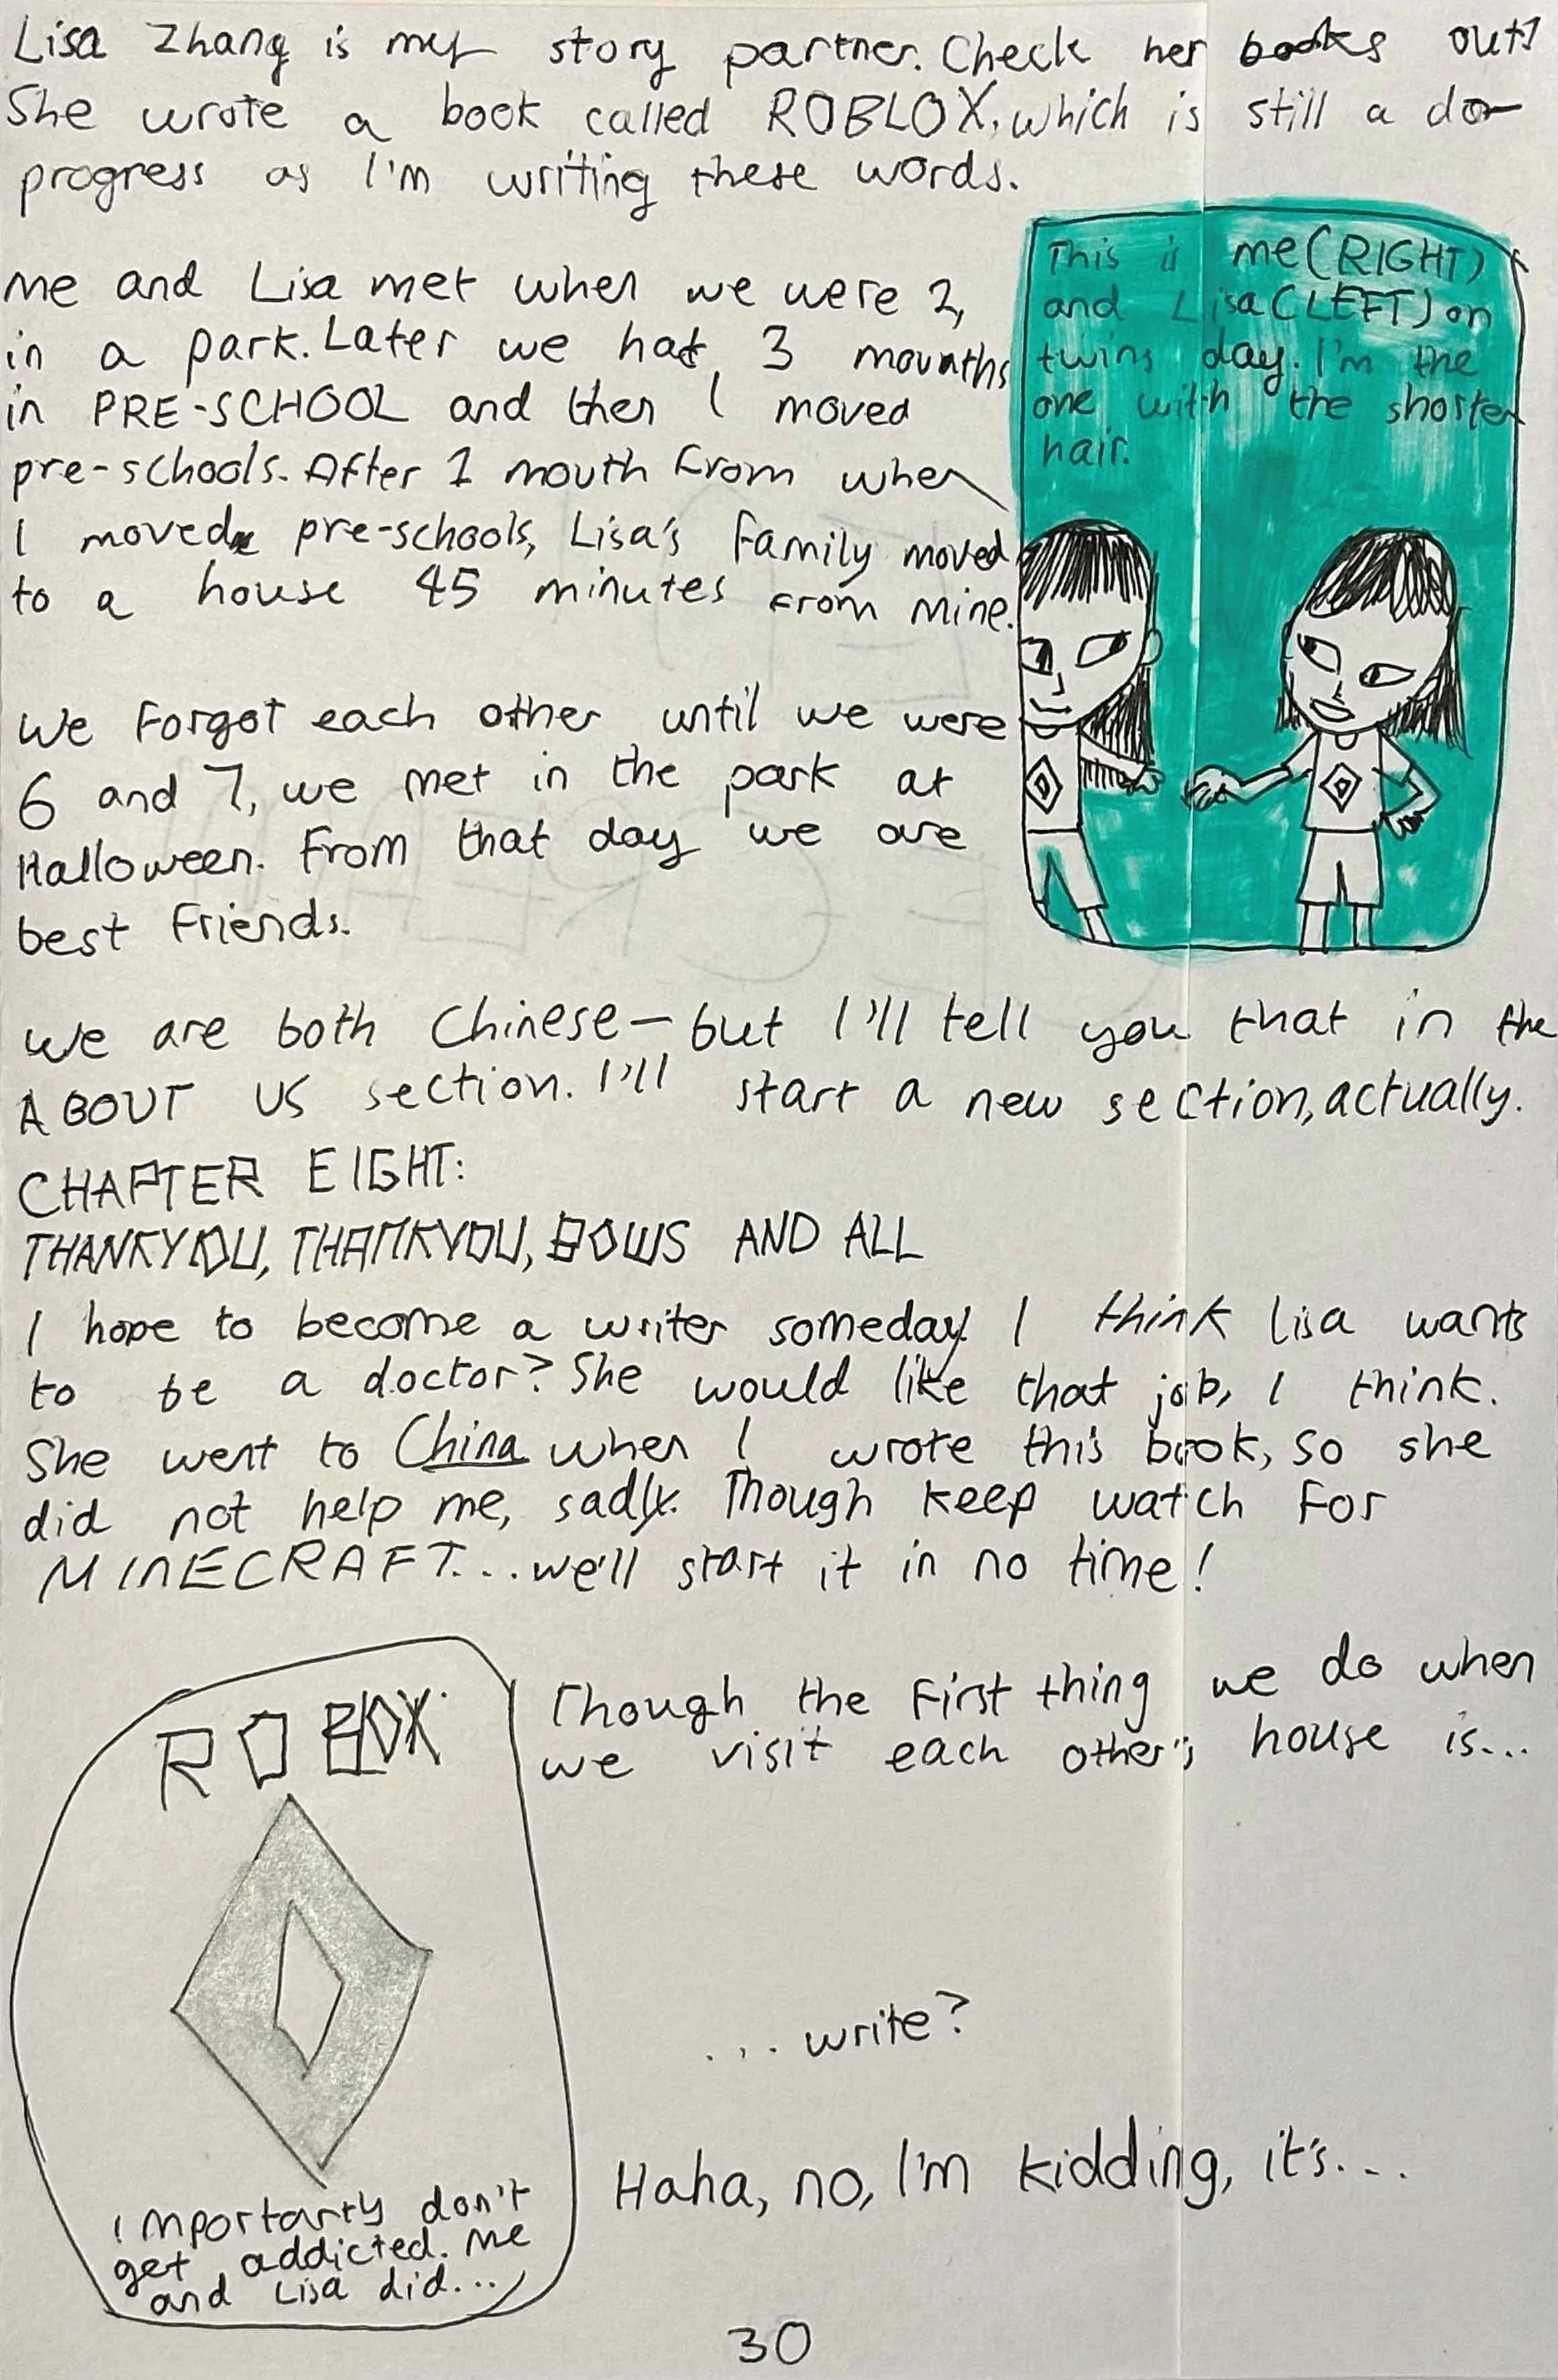 Lisa Zhang is my story partner. Check her books out!
She wrote a book called ROBLOX, which is still a do-
progress as I'm writing these words.
me and Lisa met when we were 2,
in a park. Later we had 3 mounths
in PRE-SCHOOL and then I moved
pre-schools. After 1 mouth from when
I moved pre-schools, Lisa's family moved
to a house 45 minutes from mine.
We forgot each other until we were
6 and 7, we met in the park at
Halloween. From that day we are
best friends.
This is me (RIGHT)
and Lisa (LEFT) on
twins day. I'm the
one with the shorter
hair.
We are both Chinese — but I'll tell you that in the
ABOUT US section. I'll start a new section, actually.
CHAPTER EIGHT:
THANKYOU, THANKYOU, BOWS AND ALL
I hope to become a writer someday I think Lisa wants
to be a doctor? She would like that job, I think.
She went to China when I wrote this book, so she
did not help me, sadly. Though keep watch for
MINECRAFT... we'll start it in no time!
Though the first thing we do when
we visit each other's house is...
...write?
Haha, no, I'm kidding, it's...
importantly don't
get addicted. Me
and Lisa did...
30